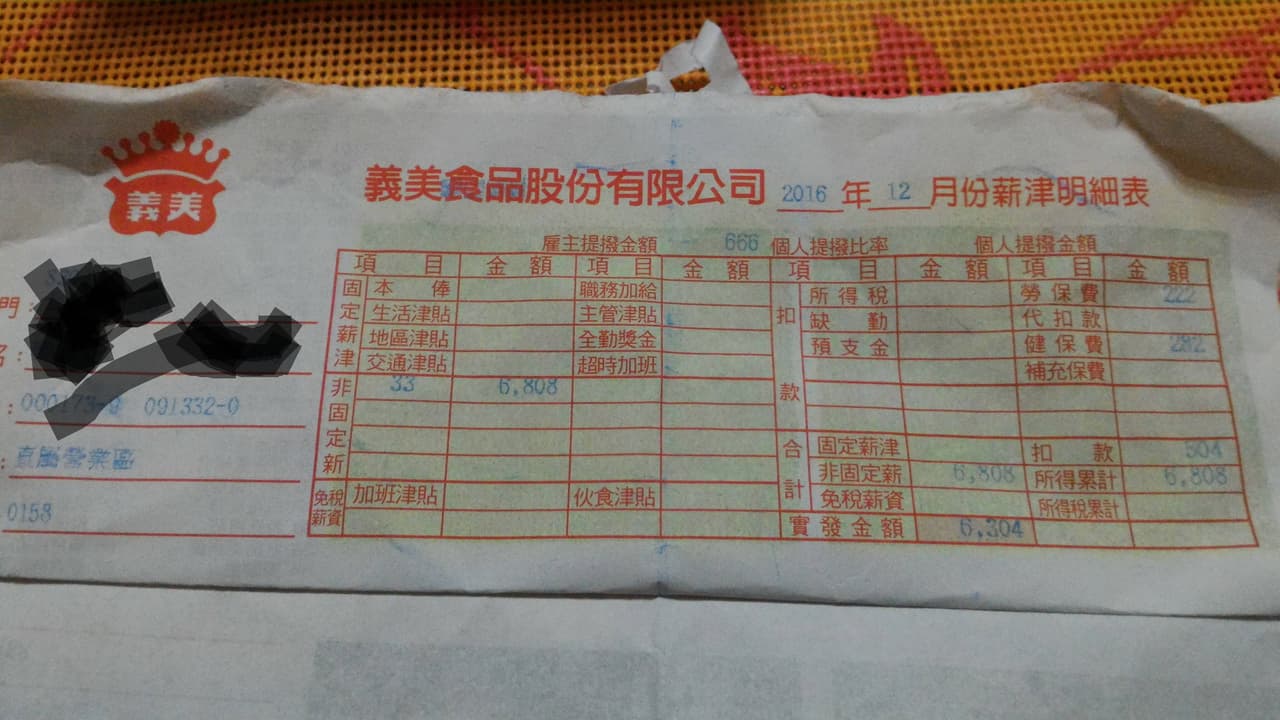 義美
義美食品股份有限公司 2016 年 12 月份薪津明細表
雇主提撥金額 666 個人提撥比率 個人提撥金額
項目 金額 項目 金額 項目 金額 項目 金額
固定薪津 本俸 職務加給 扣款 所得稅 勞保費 222
生活津貼 主管津貼 缺勤 代扣款
地區津貼 全勤獎金 預支金 健保費 282
交通津貼 超時加班 補充保費
非固定薪 33 6,808
合計 固定薪津 扣款 504
非固定薪 6,808 所得累計 6,808
免稅薪資 加班津貼 伙食津貼 免稅薪資 所得稅累計
實發金額 6,304
門:
名:
: 091332-0
: 直屬營業區
0158